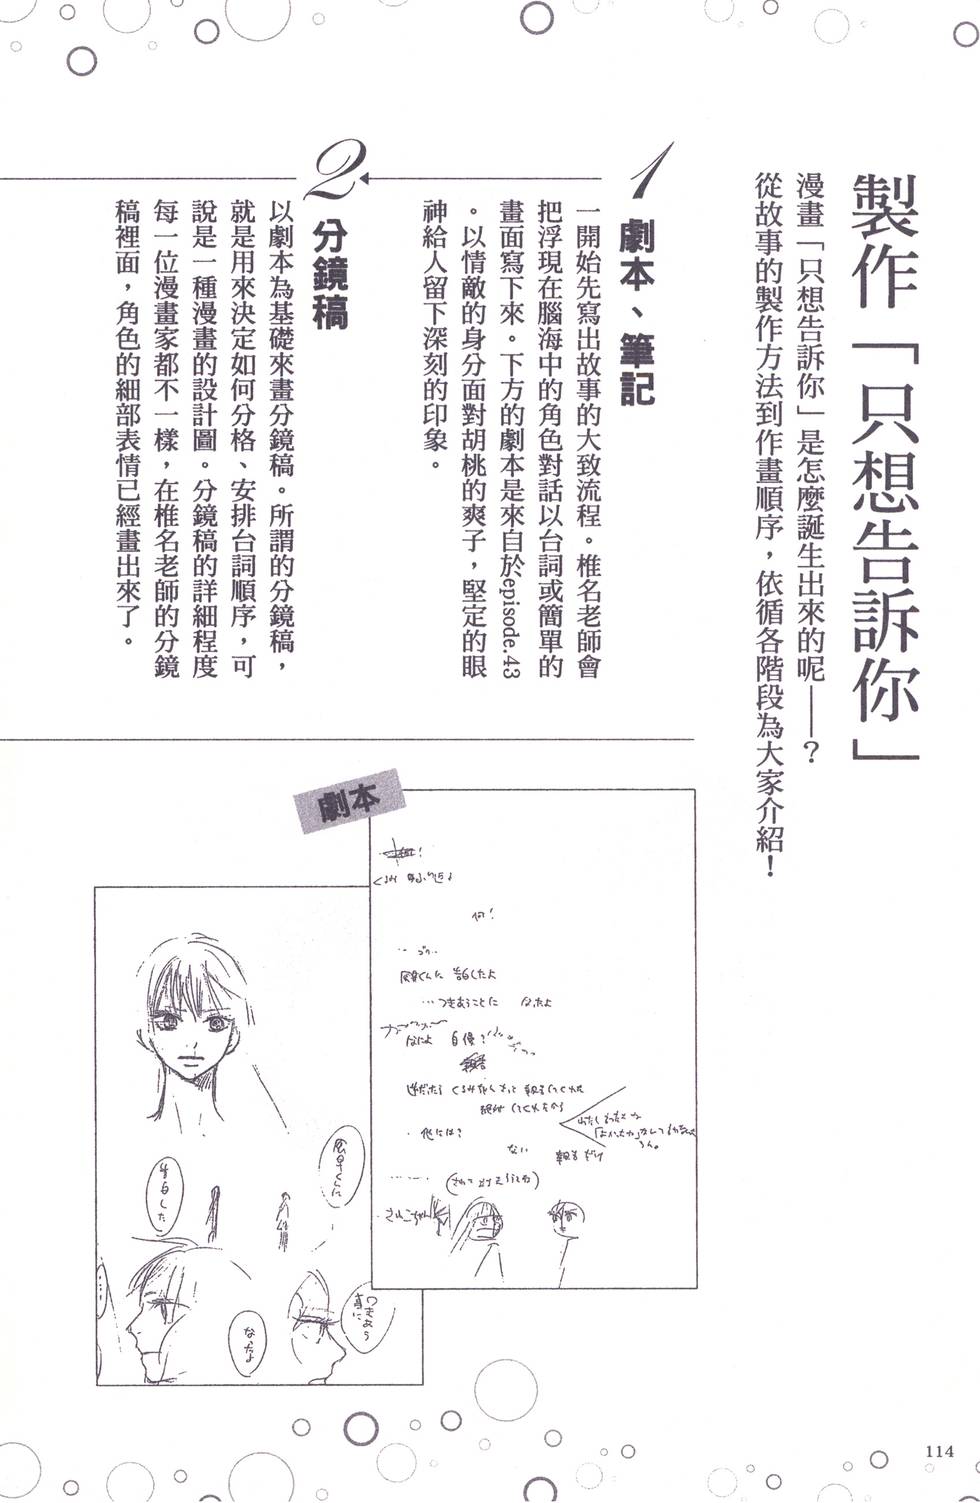 製作「只想告訴你」
漫畫「只想告訴你」是怎麼誕生出來的呢——？
從故事的製作方法到作畫順序，依循各階段為大家介紹！
1
劇本、筆記
一開始先寫出故事的大致流程。椎名老師會
把浮現在腦海中的角色對話以台詞或簡單的
畫面寫下來。下方的劇本是來自於episode.43
。以情敵的身分面對胡桃的爽子，堅定的眼
神給人留下深刻的印象。
2
分鏡稿
以劇本為基礎來畫分鏡稿。所謂的分鏡稿，
就是用來決定如何分格、安排台詞順序，可
說是一種漫畫的設計圖。分鏡稿的詳細程度
每一位漫畫家都不一樣，在椎名老師的分鏡
稿裡面，角色的細部表情已經畫出來了。
劇本
何！
風早くんに 告白したよ
…つきあうことに なったよ
なによ 自慢？
他には？
ない
報告だけ
風早くんに
告白した
つきあう
事に
なったよ
114